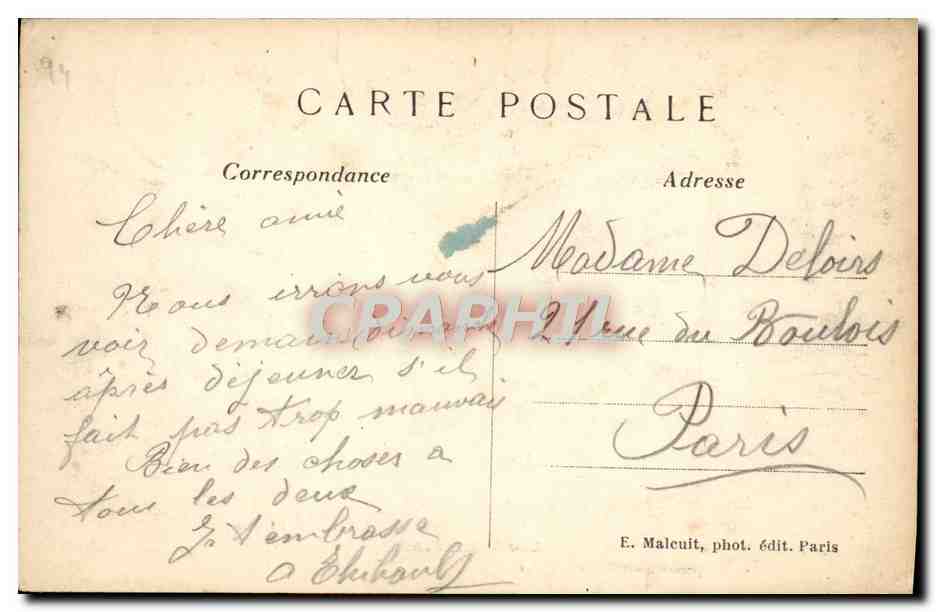 94
CARTE POSTALE
Correspondance
Chère amie
Nous irrons vous
voir demain Dimanche
après déjeuner s'il
fait pas trop mauvais
Bien des choses a
tous les deux
Je t'embrasse
Adresse
Madame Deloirs
21 rue du Bouloi
Paris
E. Malcuit, phot. édit. Paris
CRAPHIL